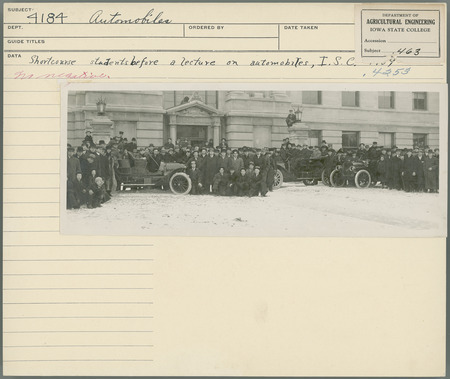 SUBJECT:
4184 Automobiles
DEPT.
ORDERED BY
DATE TAKEN
GUIDE TITLES
DATA Shortcourse students before a lecture on automobiles, I.S.C.
No negative.
DEPARTMENT OF
AGRICULTURAL ENGINEERING
IOWA STATE COLLEGE
Accession
Subject .463
.4253